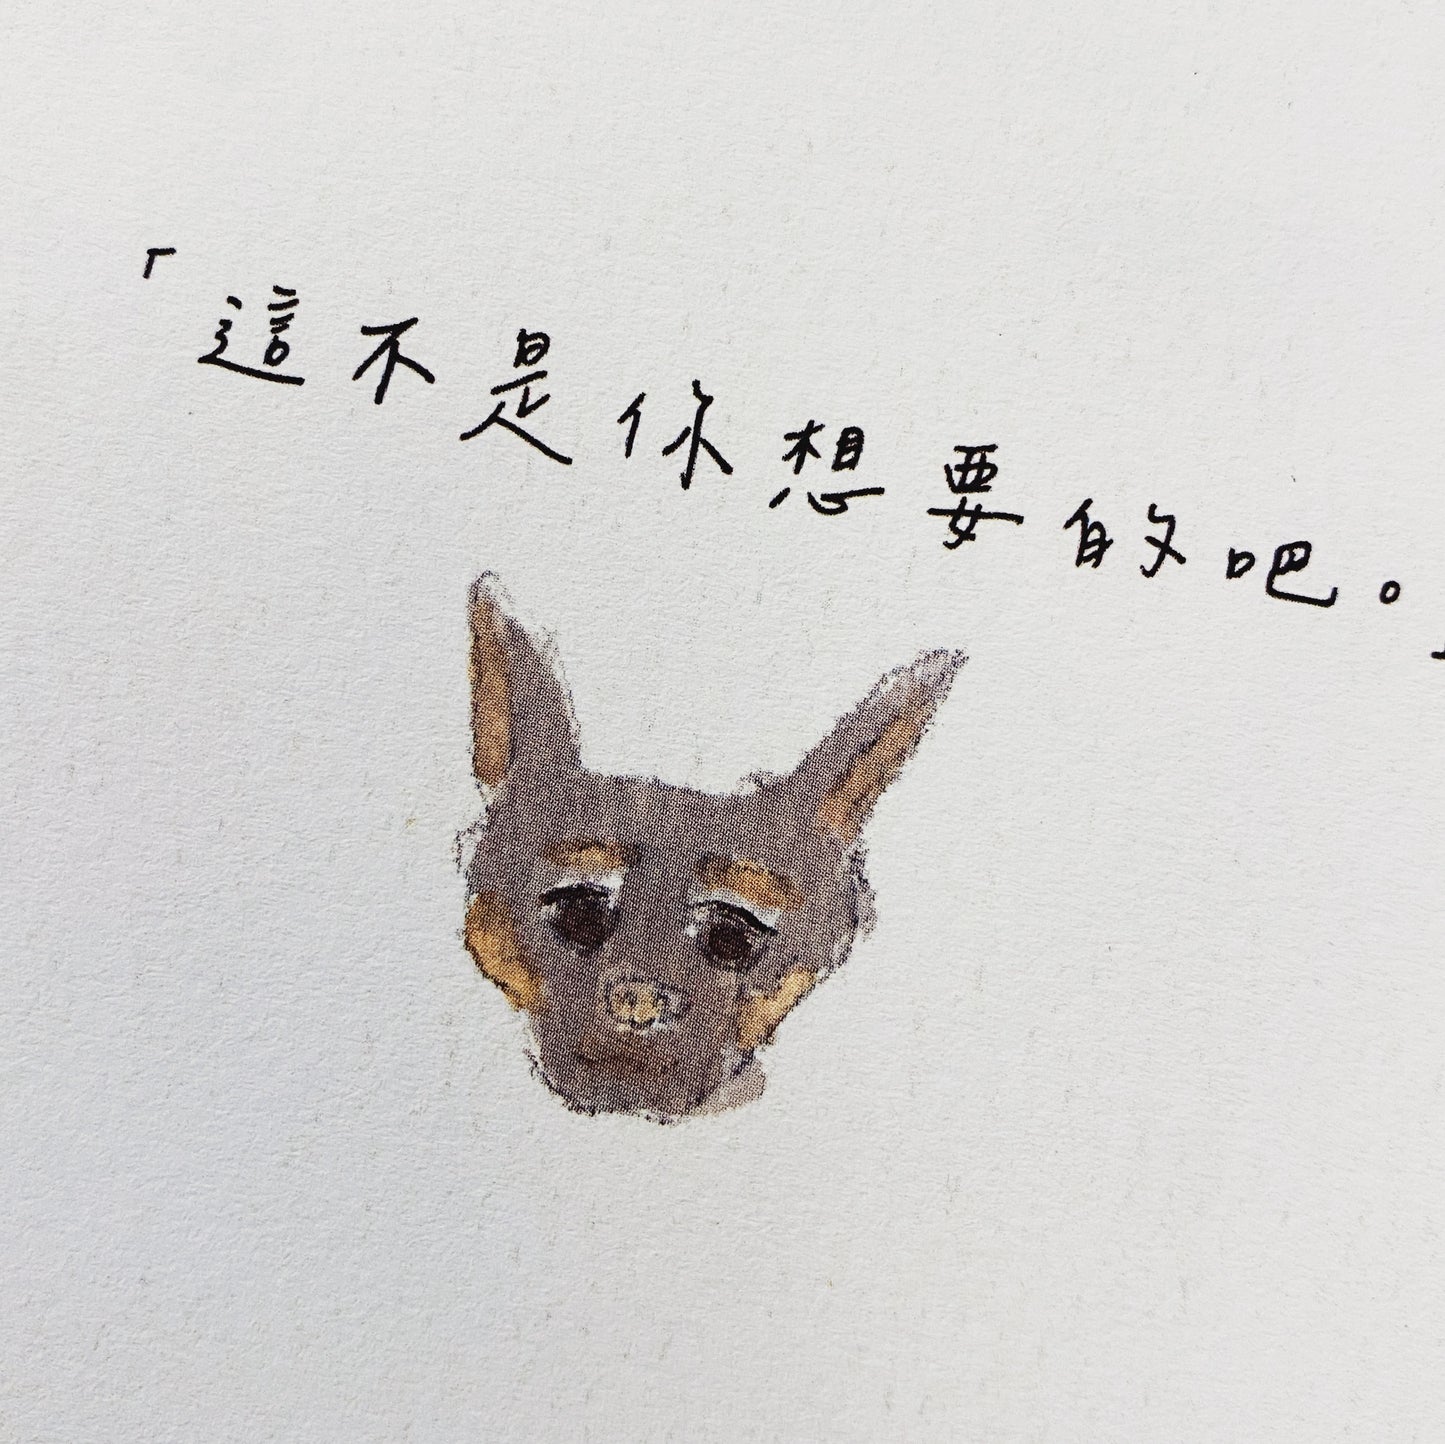 「這不是你想要的吧。」